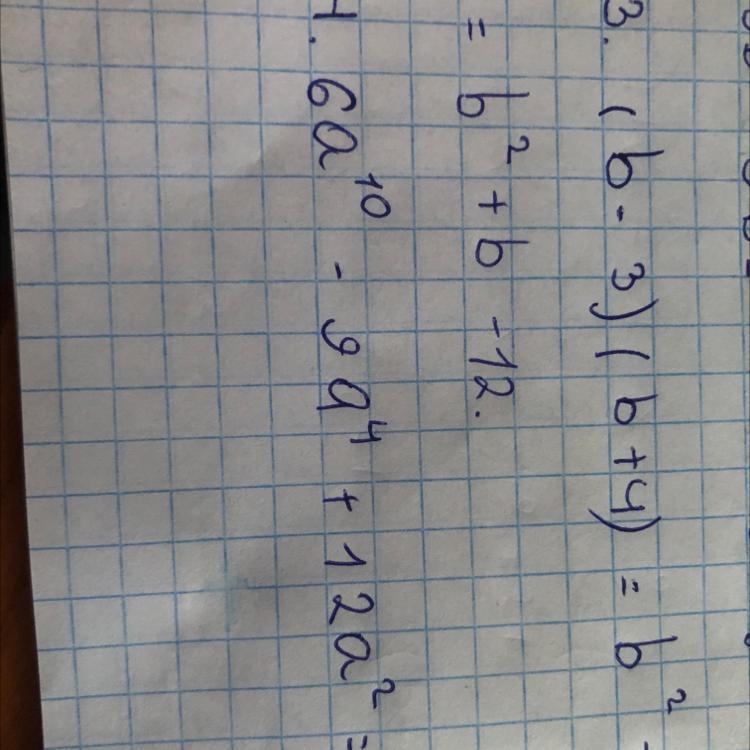 3. (b - 3)(b + 4) = b²
= b² + b - 12.
4. 6a¹⁰ - 9a⁴ + 12a² =